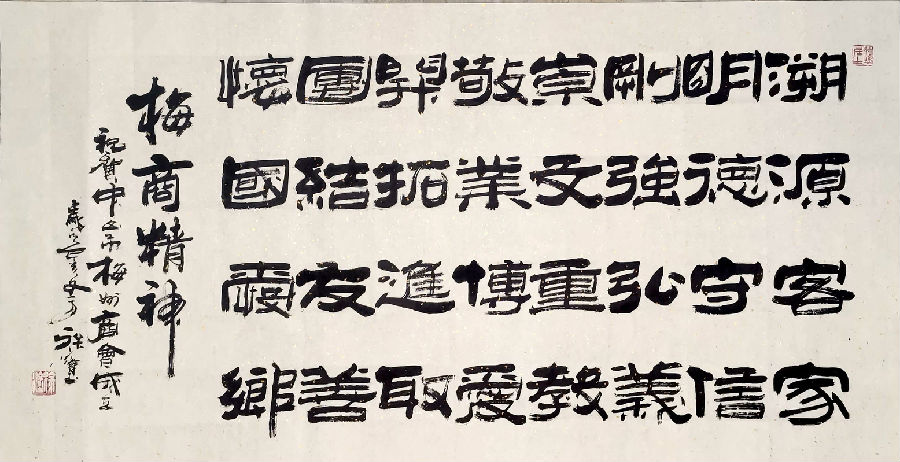 溯源客家
明德守信
剛強弘義
崇文重教
敬業博愛
開拓進取
團結友善
懷國愛鄉
梅商精神
祝賀中山市梅州商會成立